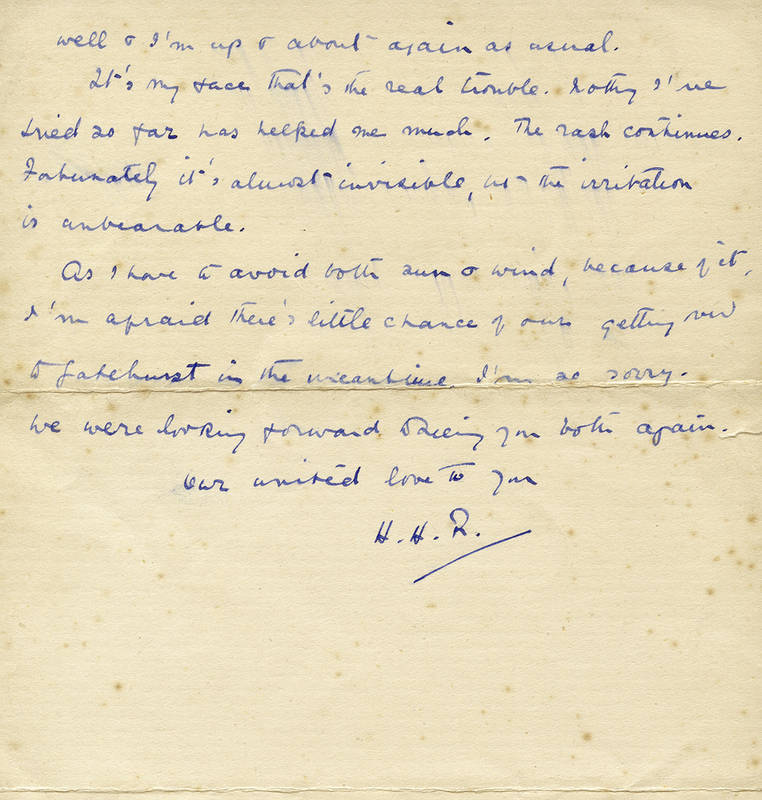 well & I'm up & about again as usual.
It's my face that's the real trouble. Nothg I've
tried so far has helped me much. The rash continues.
Fortunately it's almost invisible, but the irritation
is unbearable.
As I have to avoid both sun & wind, because of it,
I'm afraid there's little chance of our getting
to Gatehurst in the meantime. I'm so sorry.
We were looking forward to seeing you both again.
Our united love to you
H.H.R.